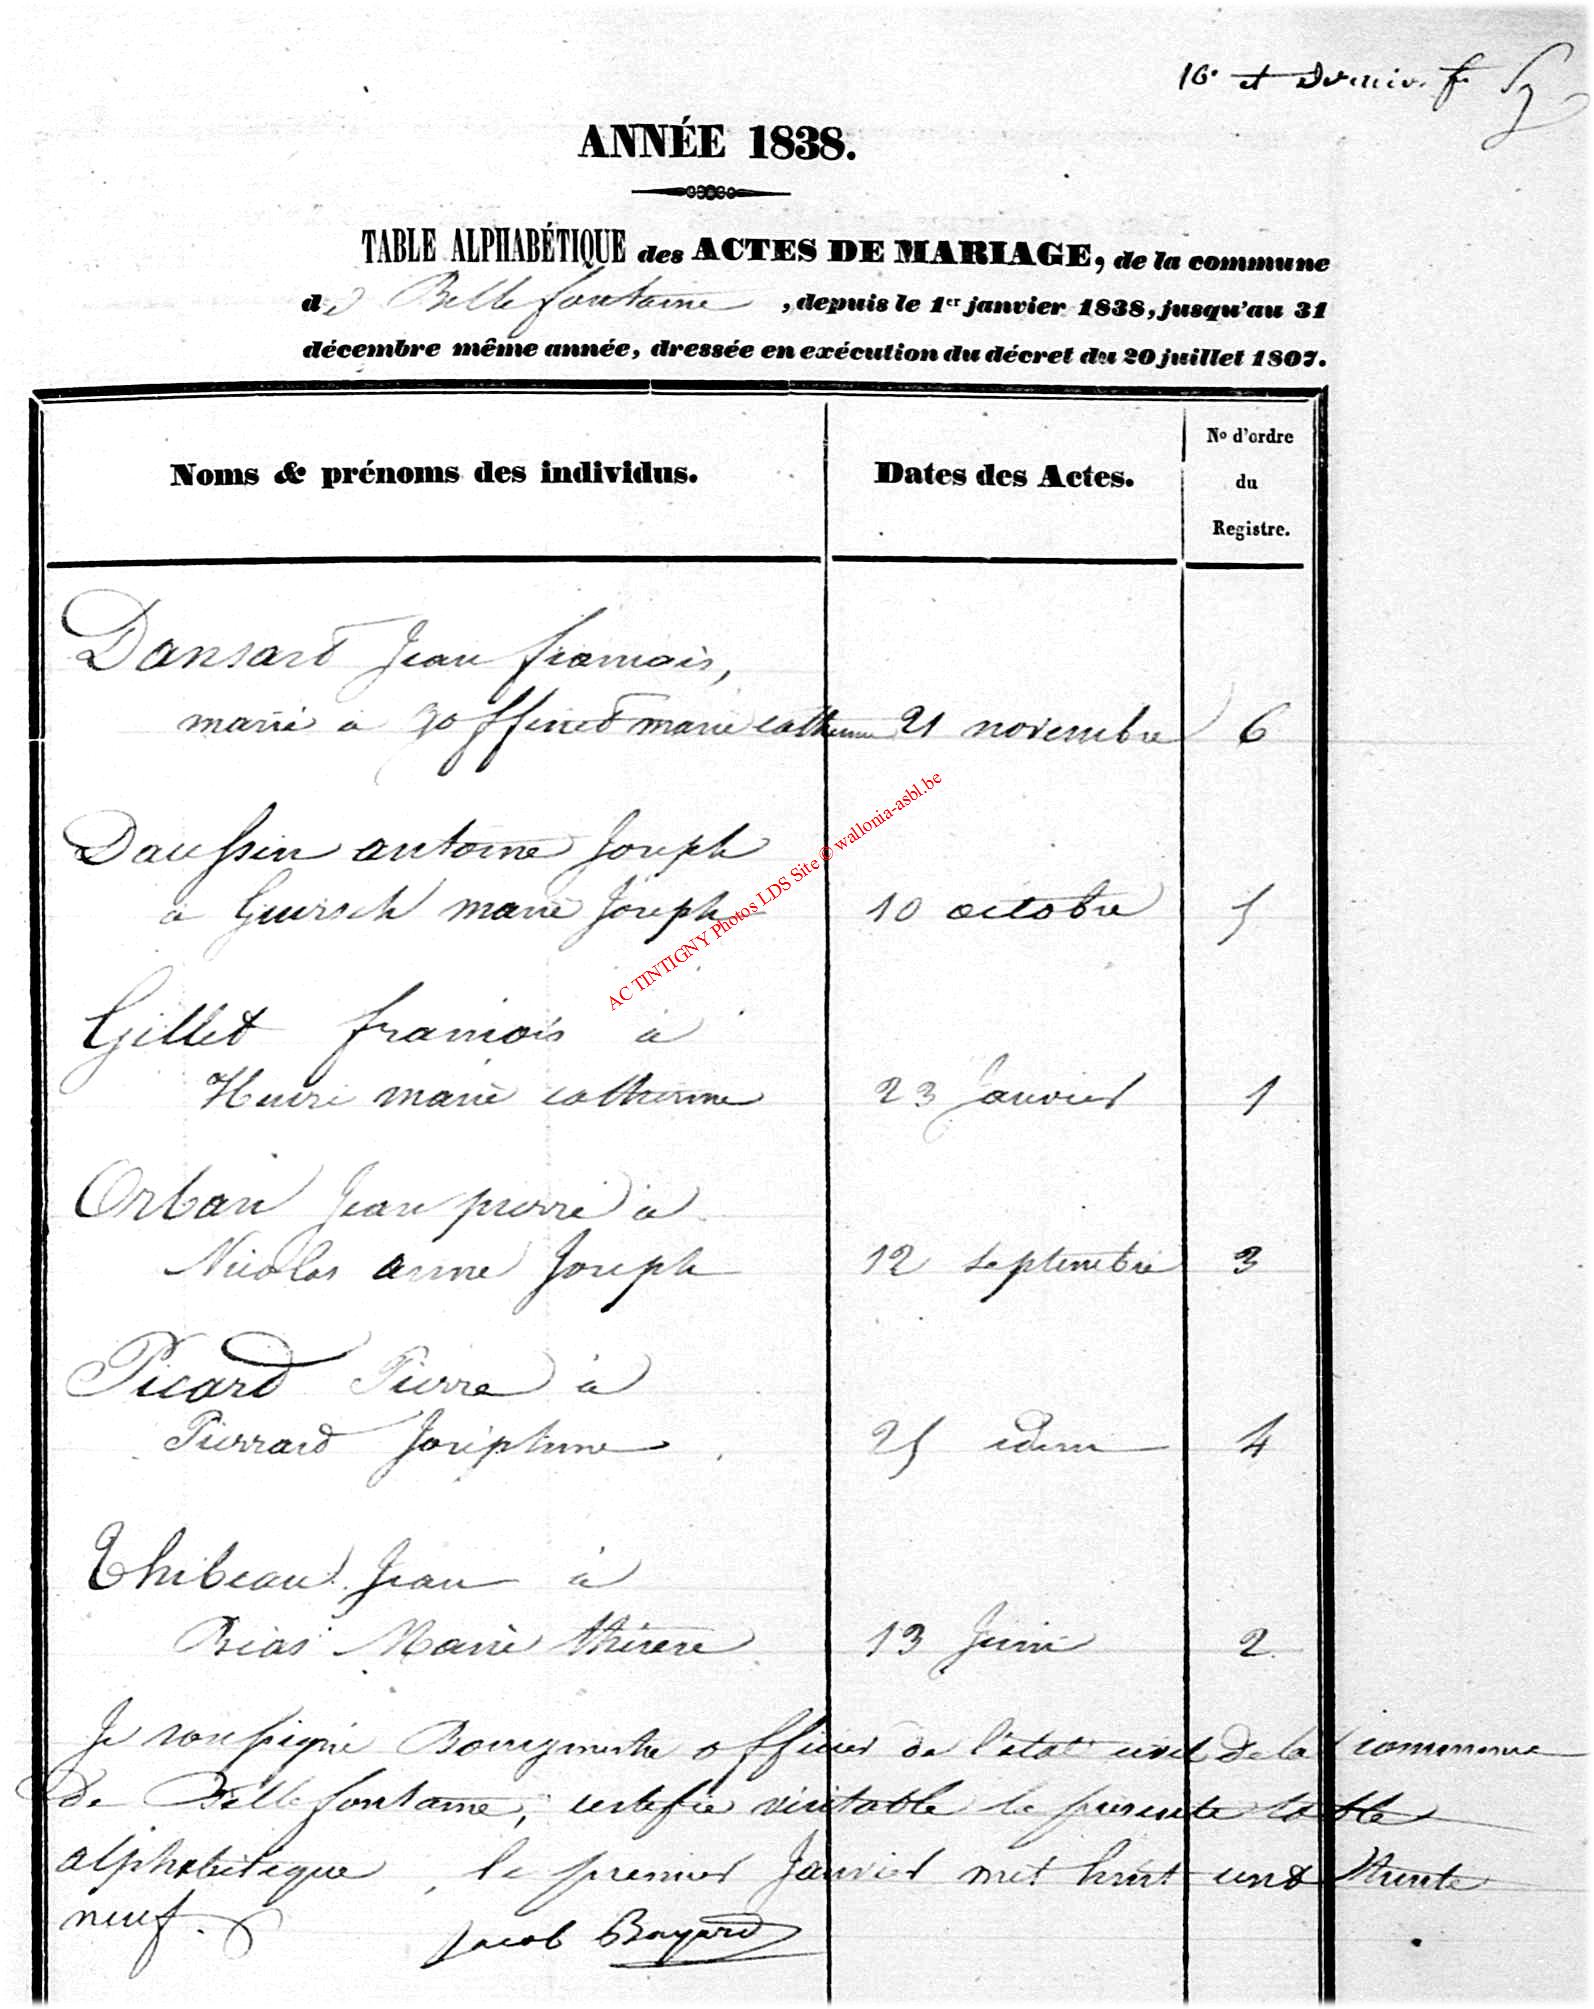 16e et dernier f.
ANNÉE 1838.
TABLE ALPHABÉTIQUE des ACTES DE MARIAGE, de la commune
de Bellefontaine, depuis le 1er janvier 1838, jusqu'au 31
décembre même année, dressée en exécution du décret du 20 juillet 1807.
Noms & prénoms des individus. Dates des Actes. No d'ordre
du
Registre.
Dansard Jean françois,
marié à goffinet marie catherine 21 novembre 6
Daussin antoine Joseph
à Guirsch marie Joseph 10 octobre 5
Gillet françois à
Henri marie catherine 23 Janvier 1
Orban Jean pierre à
Nicolas anne Joseph 12 septembre 3
Picard Pierre à
Pierrard Joséphine 25 idem 4
Thibeau Jean à
Bias Marie thérèse 13 Juin 2
Je soussigné Bourgmestre officier de l'état civil de la commune
de Bellefontaine, certifie véritable la présente table
alphabétique, le premier Janvier mil huit cent trente
neuf.
Jacob Bayard
AC TINTIGNY Photos LDS Site © wallonia-asbl.be